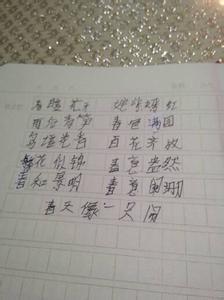 春暖花开 姹紫嫣红
雨后春笋 春色满园
鸟语花香 百花齐放
繁花似锦 春意盎然
春和景明 春意阑珊
春天像一只